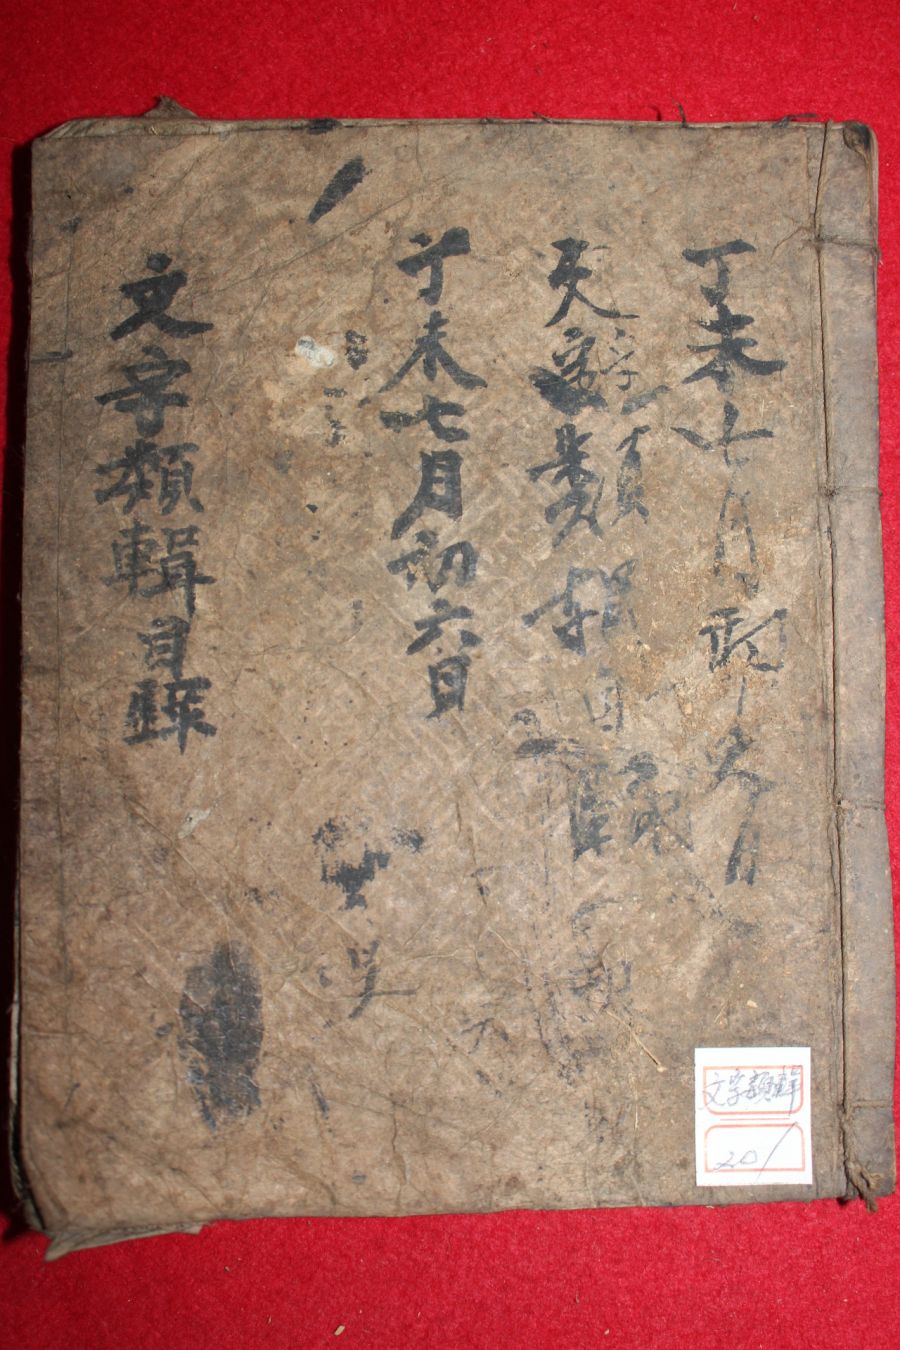 丁未七月
文字類輯目錄
丁未七月初六日
文字類輯目錄
文字類輯
20/